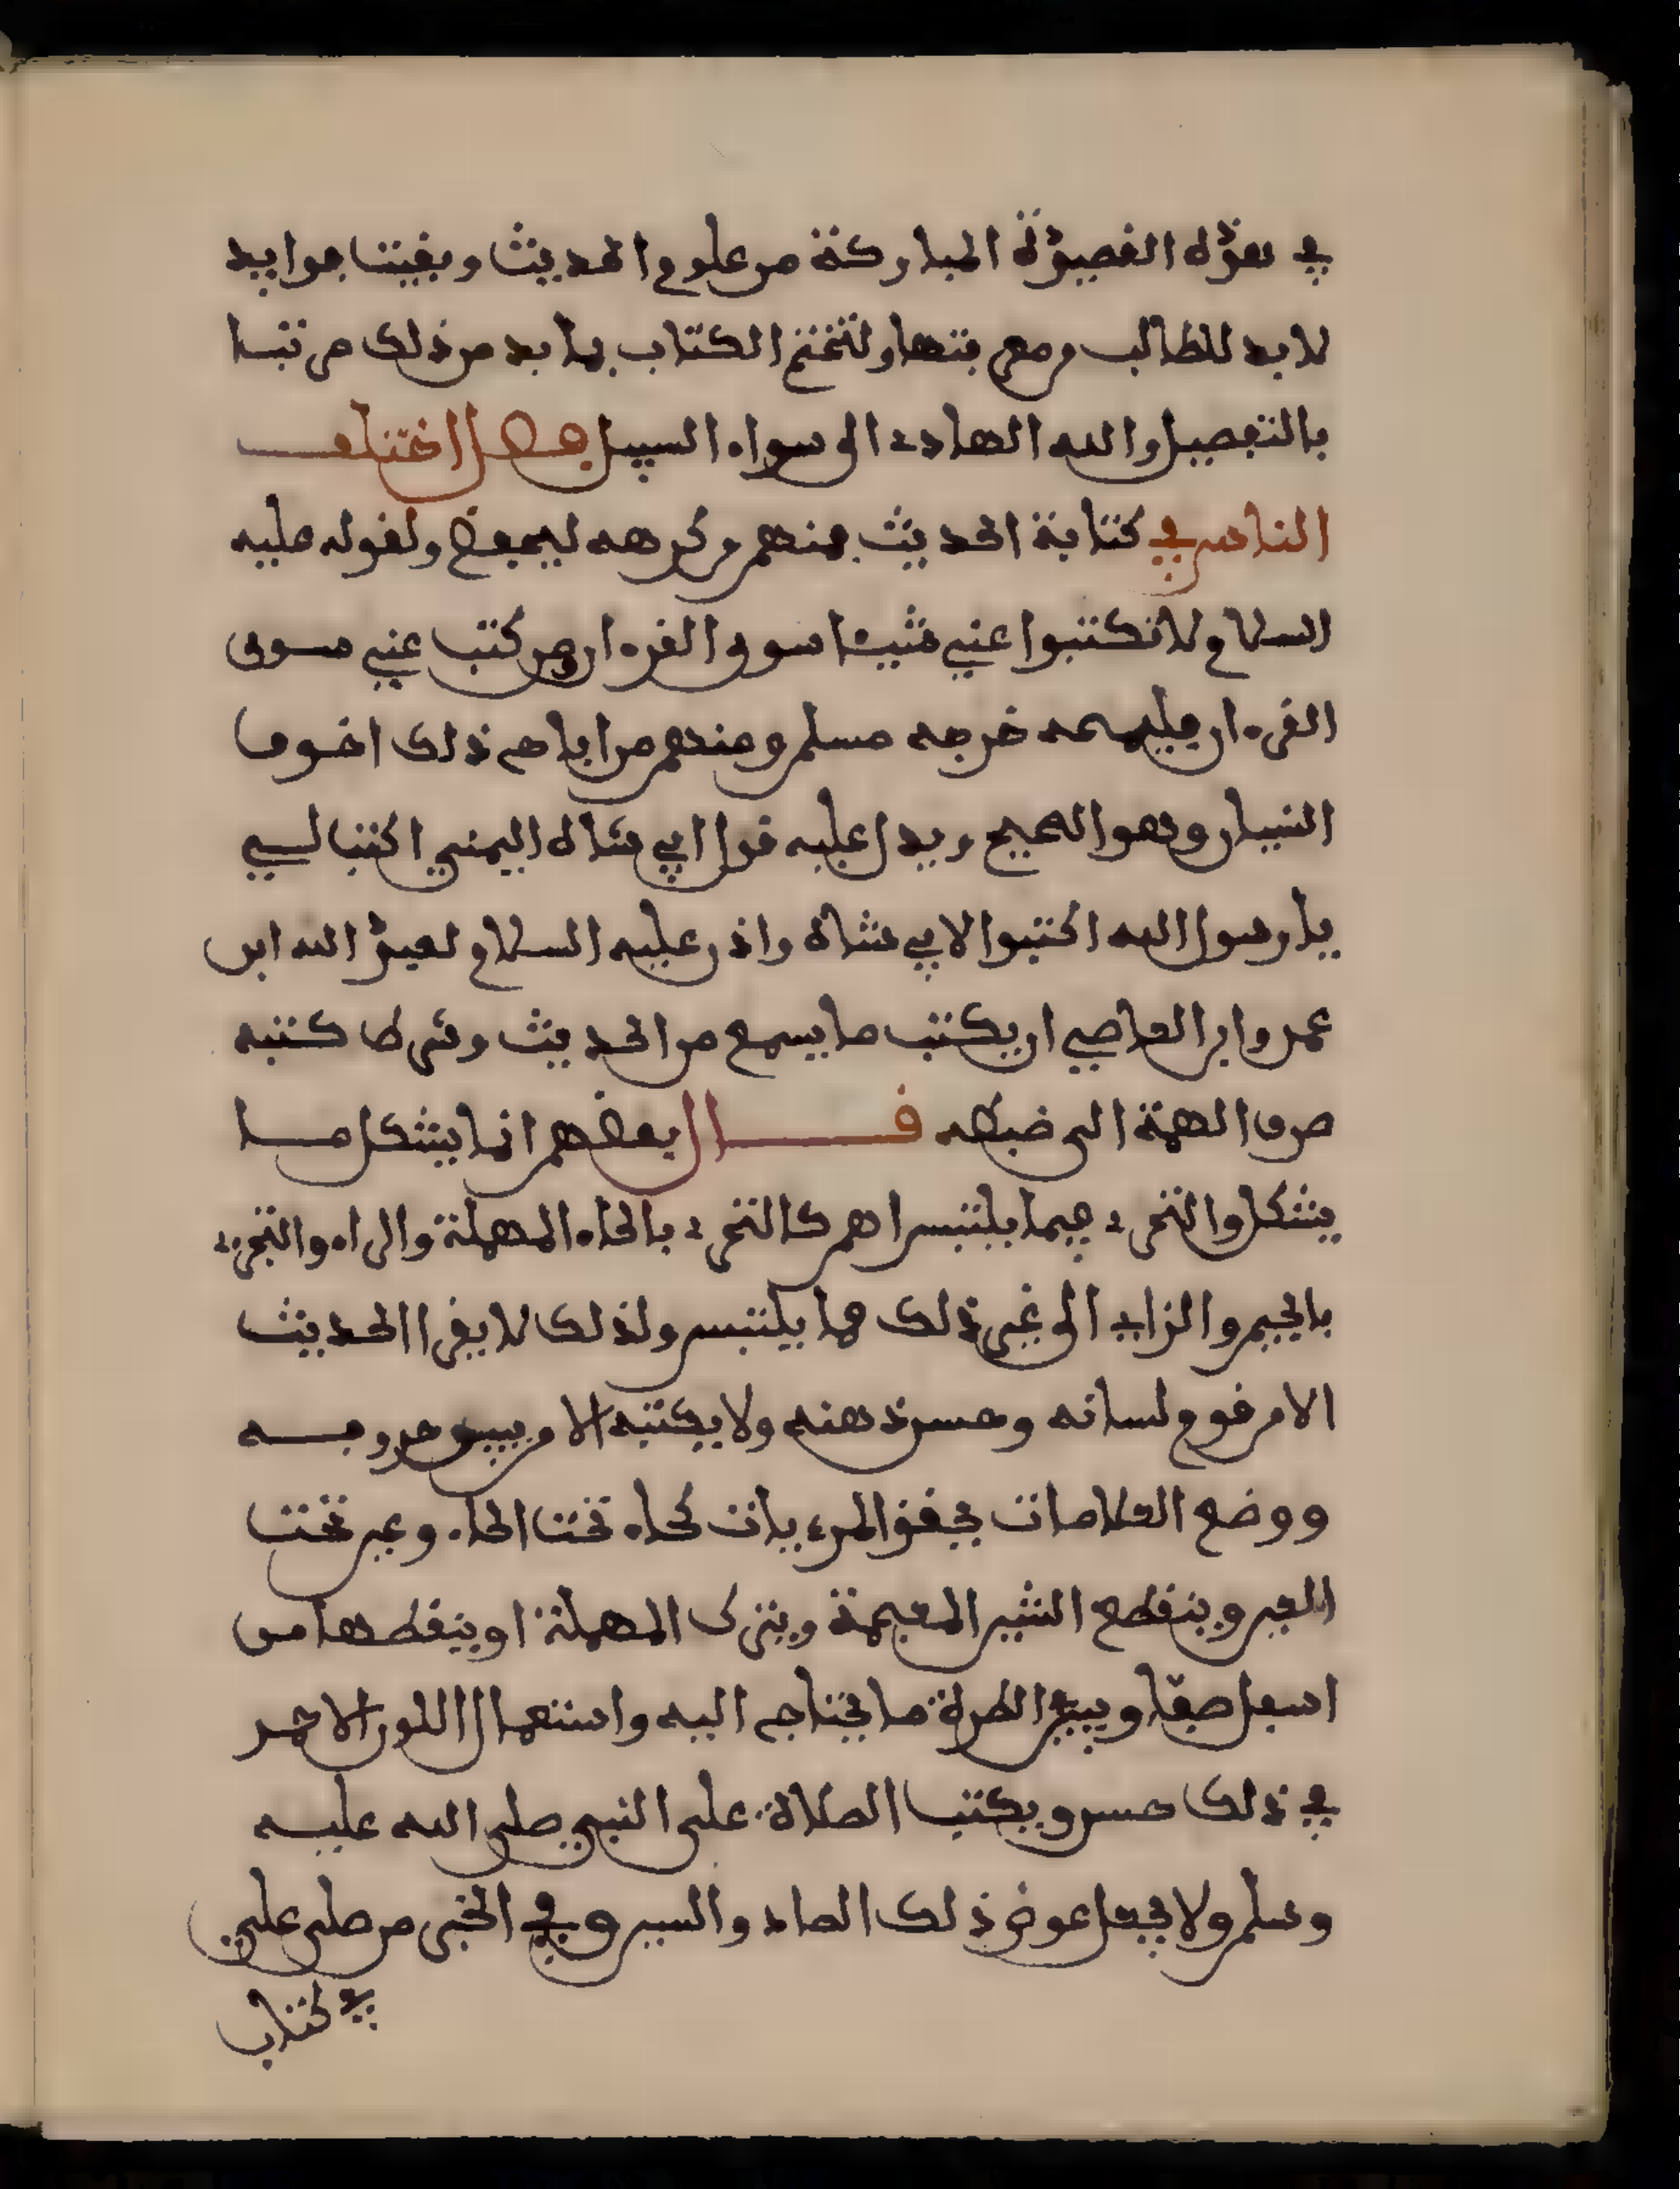 في هذه القصيدة المباركة من علوم الحديث وبقيت فوايد
لابد للطالب من معرفتها ولنختم الكتاب بما بد من ذلك مرتبا
بالتفصيل والله الهادي الى سواء السبيل فصل اختلف
الناس في كتابة الحديث فمنهم من كرهه ليحفظ ولقوله عليه
السلام لا تكتبوا عني شيئا سوى القرءان ومن كتب عني سوى
القرءان فليمحه خرجه مسلم ومنهم من اباح ذلك لخوف
النسيان وهو الصحيح ويدل عليه قول ابي شاه اليمني اكتبا لي
يا رسول الله اكتبوا لابي شاة واذن عليه السلام لعبد الله ابن
عمرو ابن العاصي ان يكتب ما يسمع من الحديث وشرط كتبه
صرف الهمة الى ضبطه قال بعضهم انما يشكل ما
يشكل والتحري فيما يلتبس اهم كالتحري بالحاء المهملة والراء والتجزي
بالجيم والزاي الى غير ذلك مما يلتبس ولذلك لا يقرا الحديث
الا من قوم لسانه وحسن ذهنه ولا يكتبه الا من يبين حروفه
ووضع العلامات تحقق المرء بيانت كحاء تحت الحاء وعين تحت
العين وينقط الشين المعجمة ويترك المهملة او ينقطها من
اسفل صفا ويبين في الطرة ما يحتاج اليه واستعمال اللون الاحمر
في ذلك حسن ويكتب الصلاة على النبي صلى الله عليه
وسلم ولا يجعل عوض ذلك الصاد والسين وفي الخبر من صلى علي
في كتاب